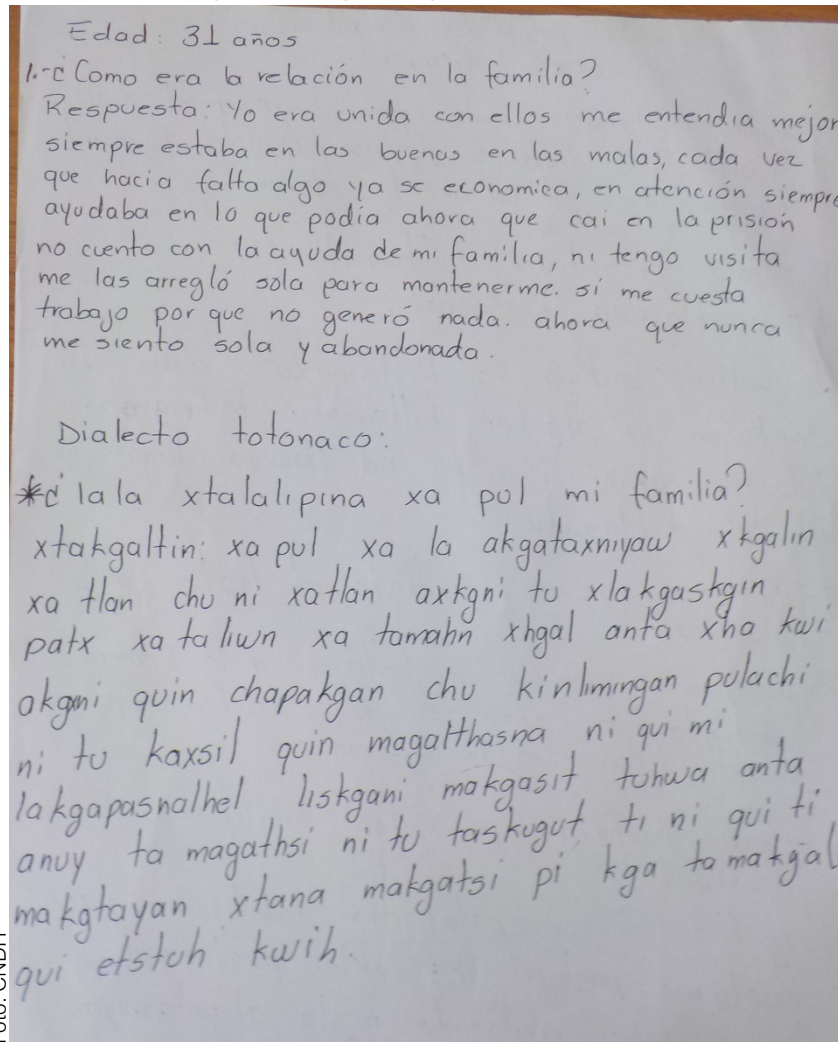 Edad: 31 años
1.-¿Como era la relación en la familia?
Respuesta: Yo era unida con ellos me entendia mejor
siempre estaba en las buenas en las malas, cada vez
que hacia falta algo ya se economica, en atención siempre
ayudaba en lo que podia ahora que cai en la prisión
no cuento con la ayuda de mi familia, ni tengo visita
me las arregló sola para mantenerme. si me cuesta
trabajo por que no generó nada. ahora que nunca
me siento sola y abandonada.
Dialecto totonaco:
*¿lala xtalalipina xa pul mi familia?
xtakgaltin: xa pul xa la akgataxniyaw xkgalin
xa tlan chu ni xatlan axkgni tu xlakgaskgin
patx xa taliwn xa tamahn xhgal anta xha kwi
akgni quin chapakgan chu kinlimingan pulachi
ni tu kaxsil quin magalthasna ni qui mi
lakgapasnalhel liskgani makgasit tuhwa anta
anuy ta magathsi ni tu taskugut ti ni qui ti
makgtayan xtana makgatsi pi kga ta makgal
qui etstuh kwih.
Foto: CNDH